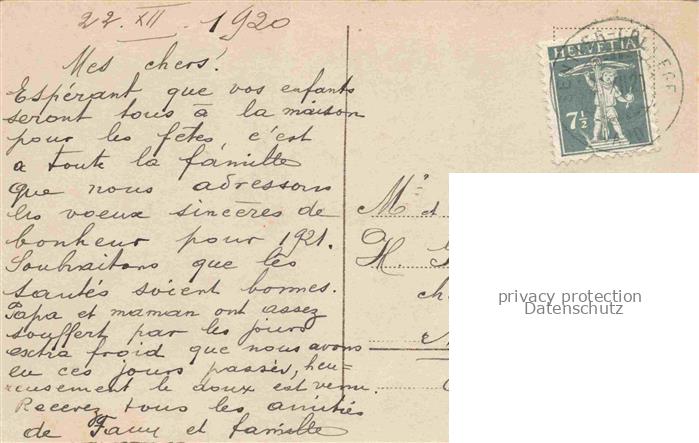 22. XII. 1920
Mes chers!
Espérant que vos enfants
seront tous à la maison
pour les fêtes c'est
a toute la famille
que nous adressons
les voeux sincères de
bonheur pour 1921.
Souhaitons que les
santés soient bonnes.
Papa et maman ont assez
souffert par les jours
extra froid que nous avons
eu ces jours passés, heu=
reusement le doux est venu.
Recevez tous les amitiés
de Fanny et famille
HELVETIA
7½
M. et
H.
ch
privacy protection
Datenschutz